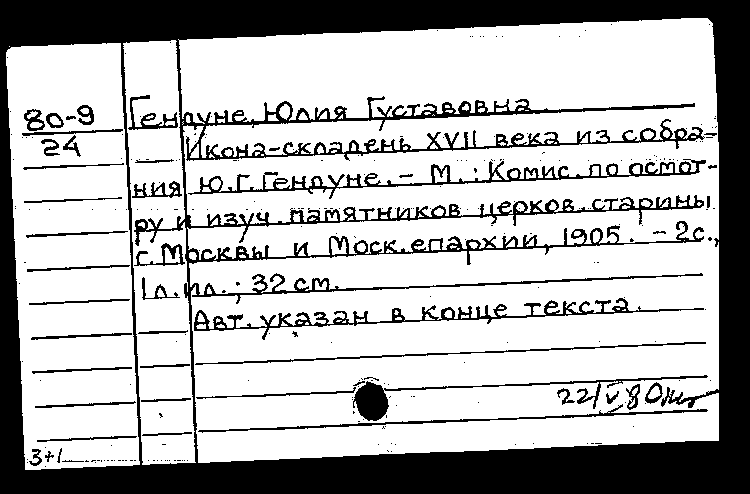 80-9 Гендуне, Юлия Густавовна.
24 Икона-складень XVII века из собра-
ния Ю.Г.Гендуне. – М.: Комис. по осмот-
ру и изуч. памятников церков. старины
г. Москвы и Моск. епархии, 1905. – 2с.,
1л. ил.; 32 см.
Авт. указан в конце текста.
22/V 80
3+1